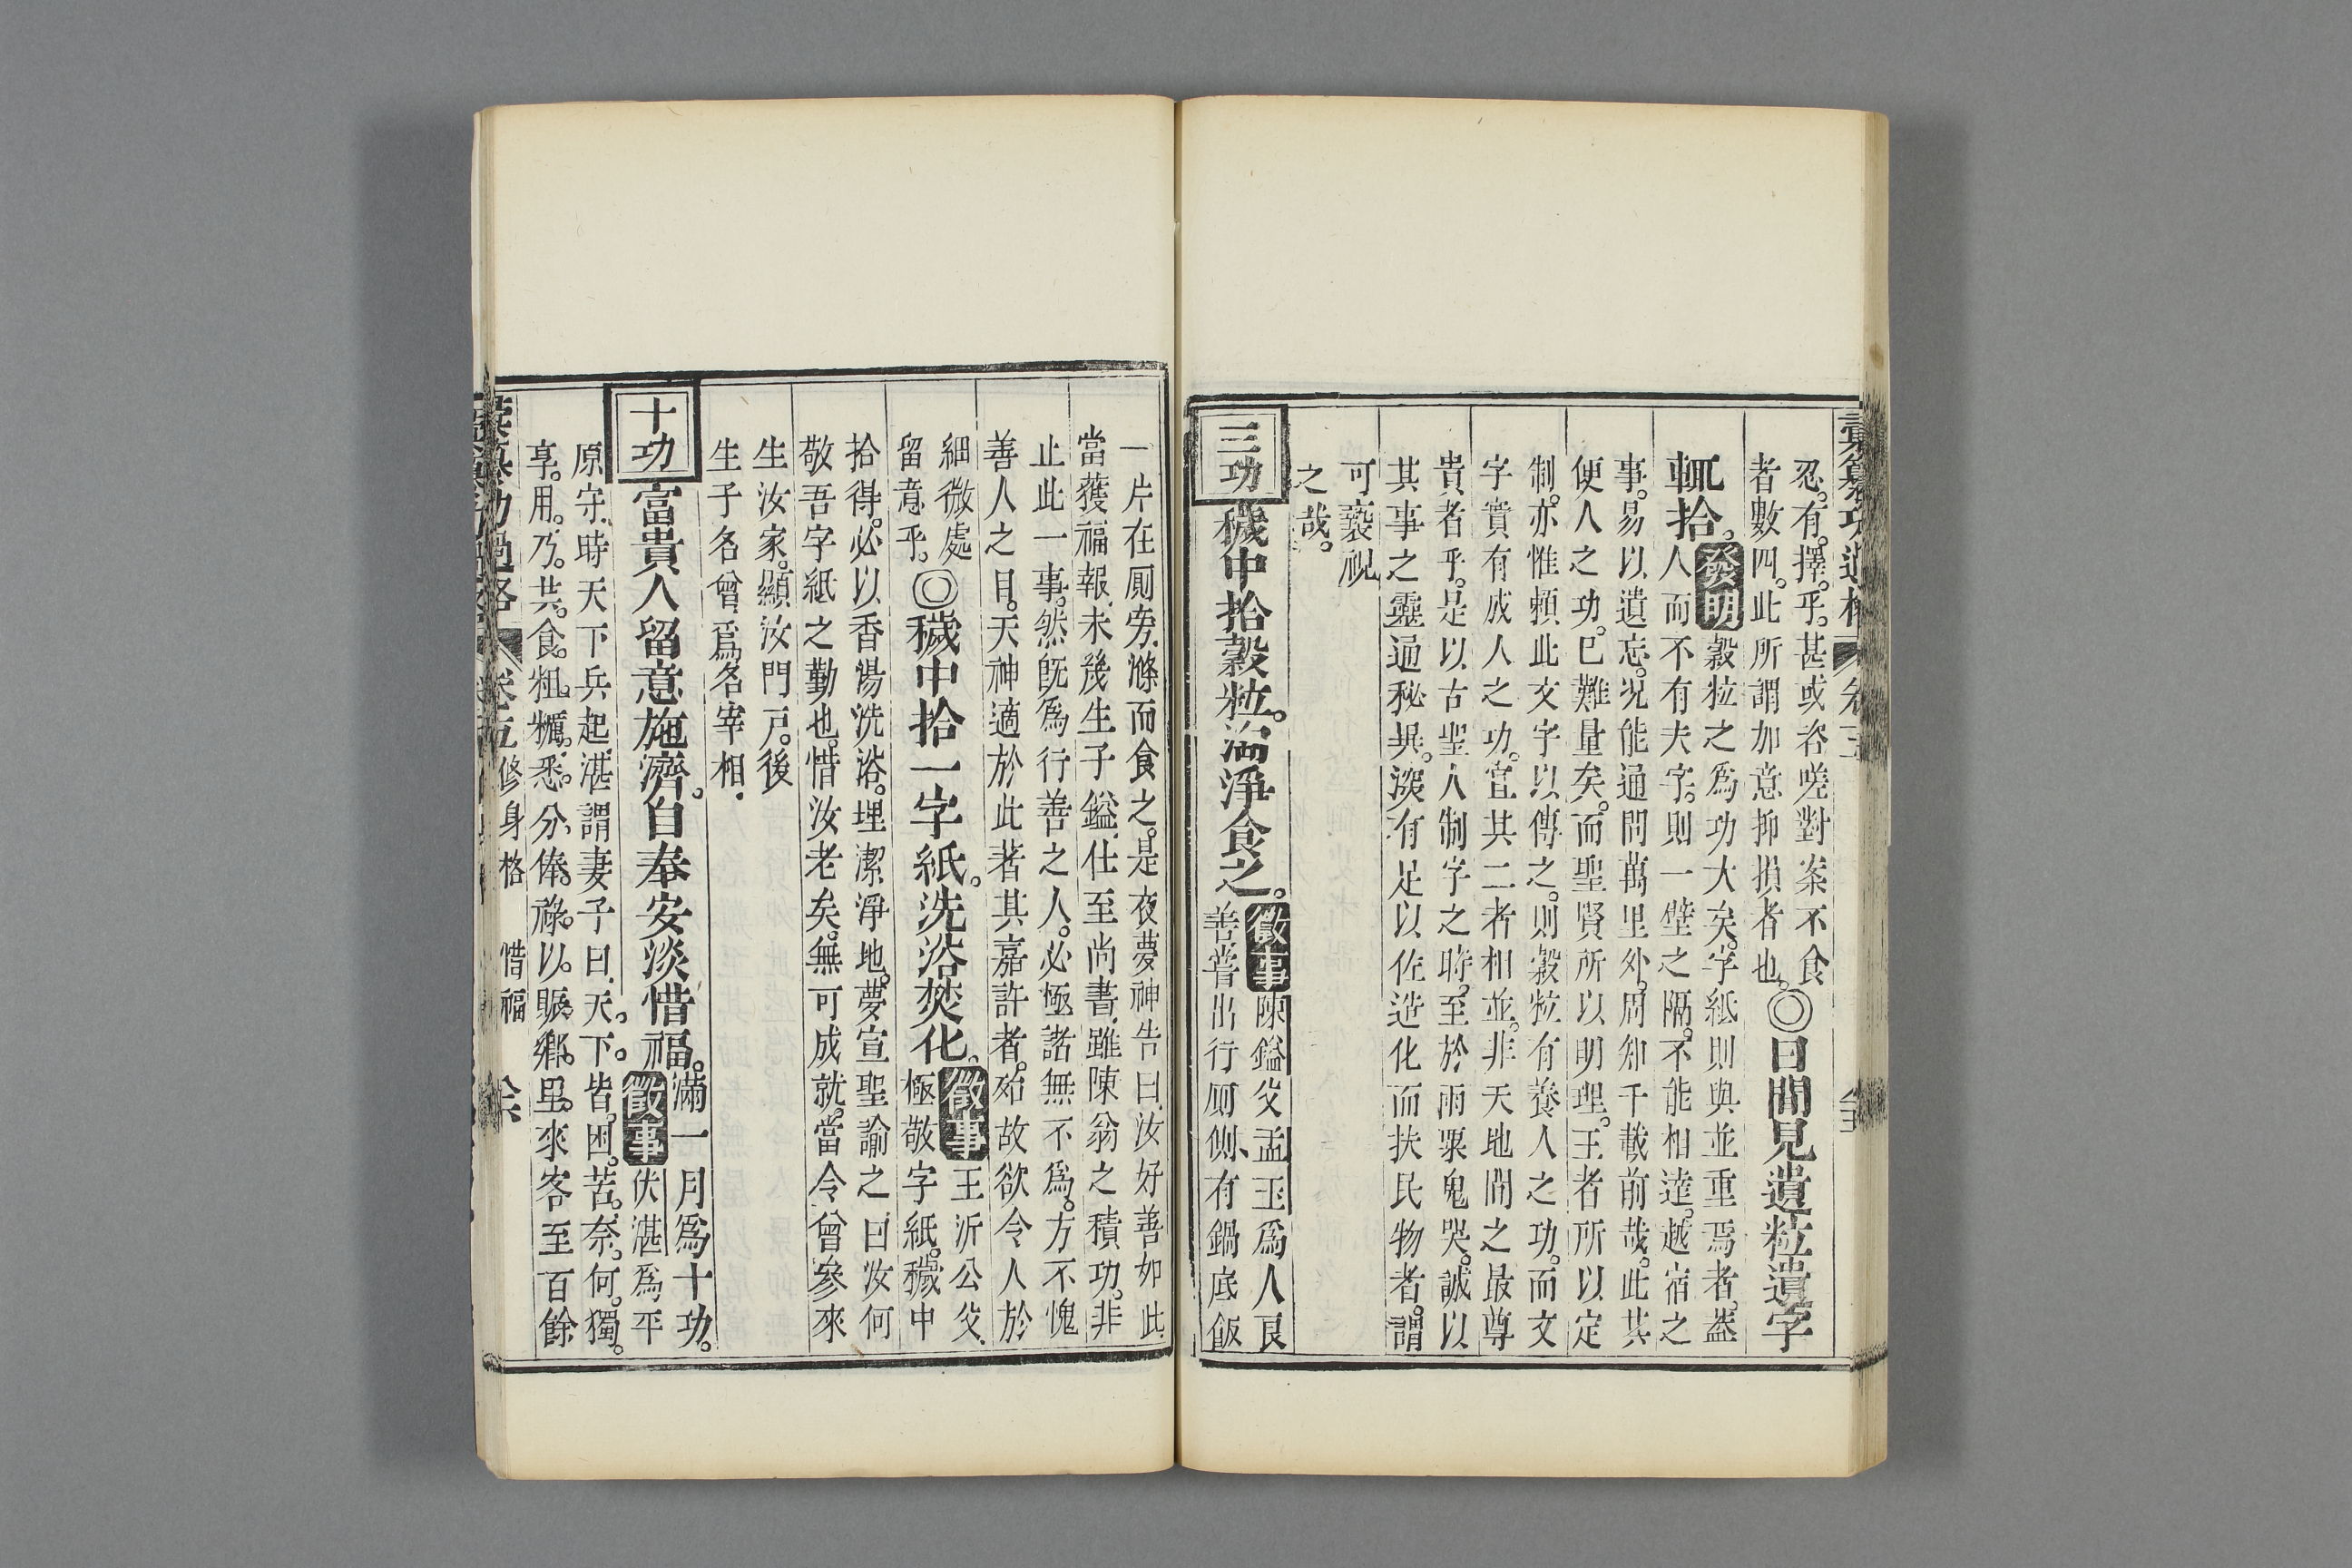 忍有擇乎甚或咨嗟對案不食
者數四此所謂加意抑損者也◎曰間見遺粒遺字
輒拾。發明穀粒之爲功大矣字紙則與並重焉者蓋
人而不有夫字則一壁之隔不能相達越宿之
事易以遺忘況能通問萬里外周知千載前哉此其
便人之功巳難量矣而聖賢所以明理王者所以定
制亦惟頼此文字以傳之則穀粒有養人之功而文
字實有成人之功宜其二者相並非天地間之最尊
貴者乎是以古聖人制字之時至於雨粟鬼哭誠以
其事之靈通秘異深有足以佐造化而扶民物者謂
可褻視
之哉。
三功 穢中拾穀粒。淘淨食之。徵事陳鎰父孟玉爲人良
善嘗出行厠側有鍋底飯
一片在厠旁滌而食之是夜夢神告曰汝好善如此
當獲福報未幾生子鎰仕至尚書雖陳翁之積功非
止此一事然旣爲行善之人必極諸無不爲方不愧
善人之目天神適於此著其嘉許者殆故欲令人於
細微處
留意乎◎穢中拾一字紙。洗浴焚化。徵事王沂公父
極敬字紙穢中
拾得必以香湯洗浴埋潔淨地夢宣聖諭之曰汝何
敬吾字紙之勤也惜汝老矣無可成就當令曾參來
生汝家顯汝門戸後
生子名曾爲名宰相
十功 富貴人留意施濟。自奉安淡惜福。滿一月爲十功。
徵事伏湛爲平
原守時天下兵起湛謂妻子曰天下皆困苦奈何獨
享用乃共食粗糲悉分俸祿以賑鄉里來客至百餘
彙纂功過格 卷五 修身格 惜福